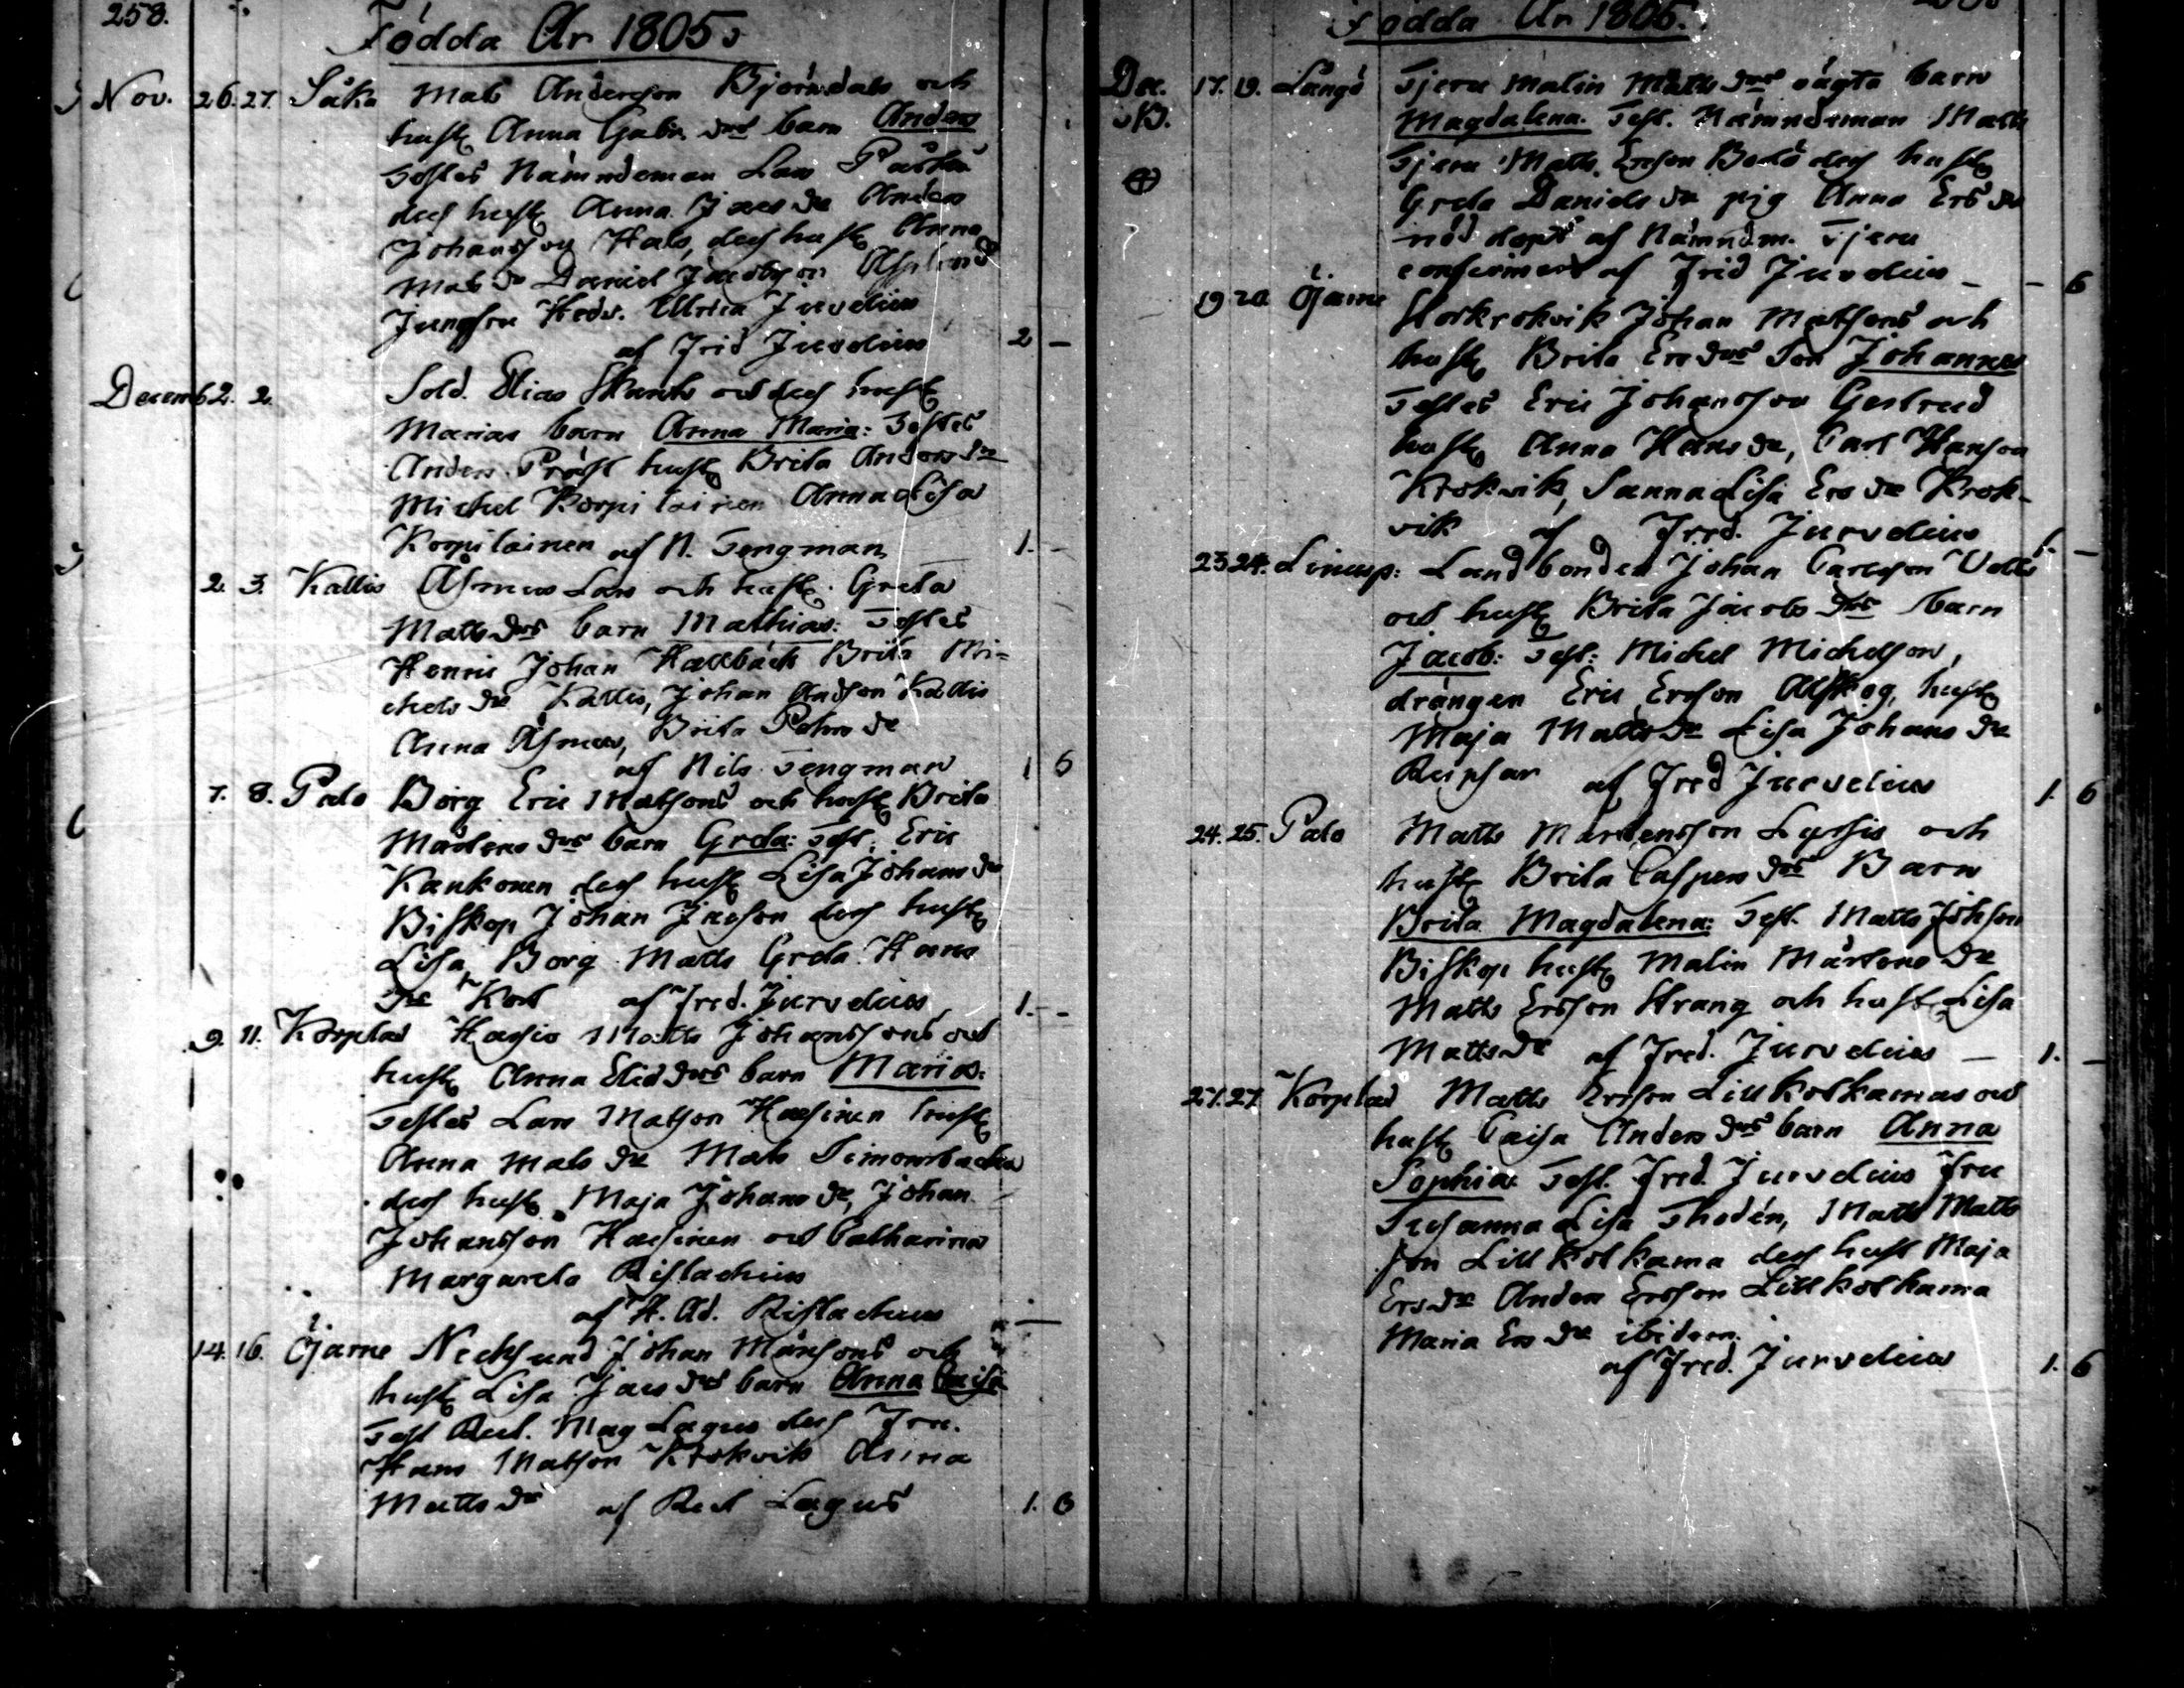 258.
Födda År 1805.
Nov. 26. 27. Såka Mats Anderson Björndals och
hust Anna Gabr. drs barn Anders
Testes Nämndeman Lars Påskä
des hust Anna Jacs dr Anders
Johansson Hals, des hust Anna
Mats dr Daniel Jacobson Asplund
Jungfru Hedv. Ullrica Jurvelius
af Frid Jurvelius 2 -
Decemb 2. 2. Sold. Elias Skarks och des hust
Marias barn Anna Maria: Testes
Anders Präst hust Brita Anders dr
Michel Korpilainen Anna Lisa
Korpilainen af N. Tengman 1. -
2. 3. Kallis Åsmus Lars och hust. Greta
Matts drs barn Mathias: Testes
Henric Johan Hallbäck Brita Mi=
chels dr Kallis, Johan Andson Kallis
Anna Åsmus, Brita Pehrs dr
af Nils Tengman 1 6
7. 8. Palo Borg Eric Matsons och hust Brita
Mårtens drs barn Greta: Test: Eric
Kankonen des hust Lisa Johans dr
Biskop Johan Jacson des hust
Lisa, Borg Matts Greta Hans
dr Kort af Fred. Jurvelius 1. -
9. 11. Korplax Hasio Matts Johanssons och
hust Anna Elis drs barn Maria:
Testes Lars Matson Hasinen hust
Anna Mats dr Mats Simonsbacka
des hust Maja Johans dr, Johan
Johansson Hasinen och Catharina
Margareta Ristachius
af H. Ad. Ristachius -
14. 16. Öjarne Necksund Johan Månsons och
hust Lisa Jacs drs barn Anna Caisa
Test Rect. Mag Lagus des Fru.
Hans Matson Krokvik Anna
Matts dr af Rect Lagus 1. 6
Födda År 1805.
Dec. 17. 19. Långö Tjeru Malin Matts drs oägta barn
Magdalena. Test. Nämndeman Matts
Tjeru Matts Ersson Bodö des hust
Greta Daniels dr pig Anna Ers dr
nöd döpt af Nämndm. Tjeru
confirmerd af Frid Jurvelius - - 6
19 20 Öjarne Storkrokvik Johan Matsons och
hust Brita Ers drs Son Johannes
Testes Eric Johansson Gestrud
hust Anna Hans dr, Carl Hanson
Krokvik, Sanna Lisa Ers dr Krok-
vik af Fred. Jurvelius 1. -
23 24. Lineusp: Landbonden Johan Carlsson Volls
och hust Brita Jacobs drs barn
Jacob: Test: Michel Michelson,
drängen Eric Ersson Alskog, hust
Maja Matts dr Lisa Johans dr
Reipsar af Fred Jurvelius 1. 6
24. 25. Palo Matts Mårtensson Lepsis och
hust Brita Caspers drs Barn
Brita Magdalena: Test. Matts Johson
Biskop hust Malin Mårtens dr
Matts Ersson Strang och hust Lisa
Matts dr af Fred. Jurvelius - 1. -
27. 27. Korplax Matts Ersson Lillkoskamas och
hust Caisa Anders drs barn Anna
Sophia Test. Fred. Jurvelius Fru
Susanna Lisa Thodén, Matts Matts
son Lillkoskama des hust Maja
Ers dr Anders Ersson Lillkoskama
Maria Ers dr ibidem.
af Fred. Jurvelius 1. 6